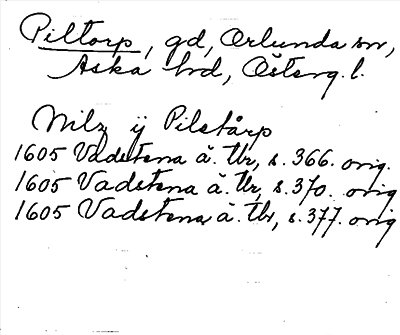 Piltorp, gd, Orlunda sn,
Aska hd, Österg. l.
Nilz ij Pilstårp
1605 Vadstena ä. Tbr, s. 366. orig.
1605 Vadstena ä. Tbr, s. 370. orig
1605 Vadstena ä. Tbr, s. 377. orig